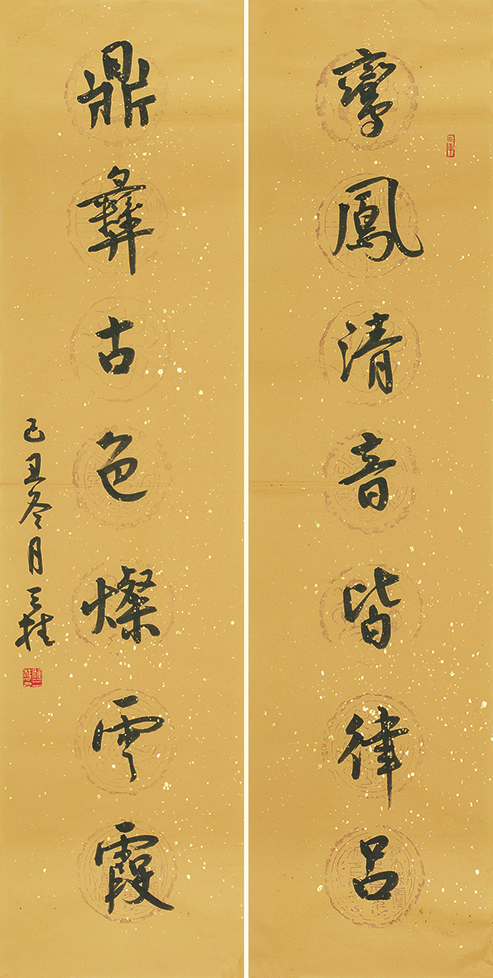 鸞鳳清音皆律呂
鼎彝古色燦雲霞
己丑冬月